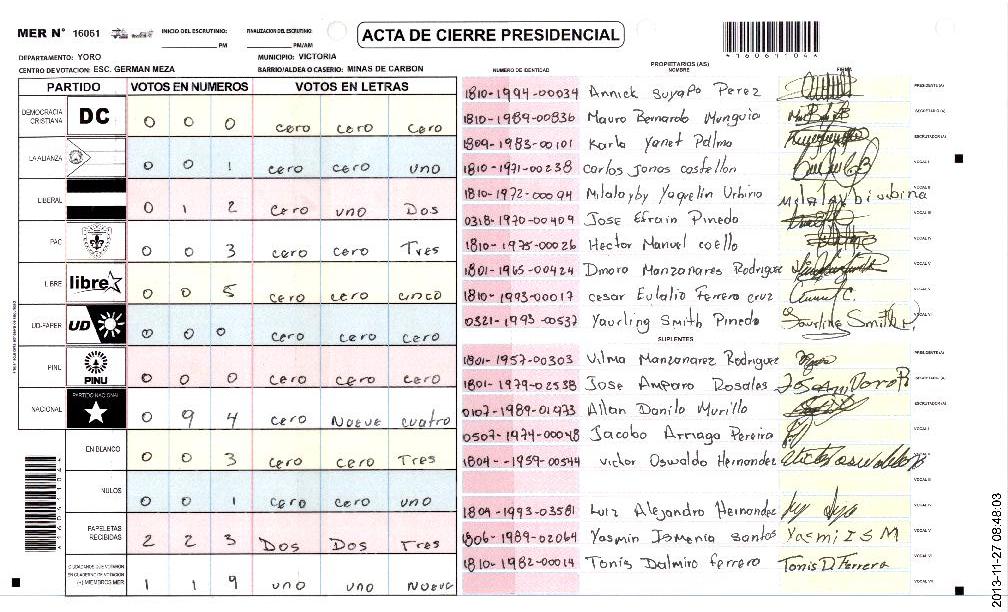 MER N° 16061
INICIO DEL ESCRUTINIO: ____ PM
FINALIZACION DEL ESCRUTINIO: ____ PM/AM
ACTA DE CIERRE PRESIDENCIAL
DEPARTAMENTO: YORO
MUNICIPIO: VICTORIA
CENTRO DE VOTACION: ESC. GERMAN MEZA
BARRIO/ALDEA O CASERIO: MINAS DE CARBON
PARTIDO VOTOS EN NUMEROS VOTOS EN LETRAS
DEMOCRACIA CRISTIANA DC 0 0 0 cero cero cero
LA ALIANZA 0 0 1 cero cero uno
LIBERAL 0 1 2 cero uno Dos
PAC 0 0 3 cero cero Tres
LIBRE libre 0 0 5 cero cero cinco
UD-FAPER UD 0 0 0 cero cero cero
PINU PINU 0 0 0 cero cero cero
NACIONAL PARTIDO NACIONAL 0 9 4 cero Nueve cuatro
EN BLANCO 0 0 3 cero cero Tres
NULOS 0 0 1 cero cero uno
PAPELETAS RECIBIDAS 2 2 3 Dos Dos Tres
CIUDADANOS QUE VOTARON EN CUADERNO DE VOTACION (+) MIEMBROS MER 1 1 9 uno uno Nueve
NUMERO DE IDENTIDAD PROPIETARIOS (AS) NOMBRE FIRMA
1810-1994-00034 Annick suyapo Perez PRESIDENTE(A)
1810-1989-00836 Mauro Bernardo Munguia SECRETARIO(A)
1809-1983-00101 Karla Yanet Palma ESCRUTADOR(A)
1810-1971-00238 carlos Jonas castellon VOCAL I
1810-1972-00094 Milaloyby Yaqelin Urbino VOCAL II
0318-1970-00409 Jose Efrain Pinedo VOCAL III
1810-1975-00026 Hector Manuel coello VOCAL IV
1801-1965-00424 Dmora Manzanares Rodrigue VOCAL V
1810-1993-00017 cesar Eulalio Ferrero cruz VOCAL VI
0321-1993-00537 Yaurling Smith Pinedo VOCAL VII
SUPLENTES
1801-1957-00303 Vilma Manzanarez Rodriguez PRESIDENTE(A)
1801-1979-02538 Jose Amparo Rosales SECRETARIO(A)
0107-1989-01973 Allan Danilo Murillo ESCRUTADOR(A)
0507-1974-00048 Jacobo Arriaga Pereira VOCAL I
1804-1959-00544 victor Oswaldo Hernandez VOCAL II
VOCAL III
1804-1993-03581 Luiz Alejandro Hernandez VOCAL IV
1806-1989-02064 Yasmin Ismenia santos Yasmi I S M VOCAL V
1810-1982-00014 Tonis Dalmiro ferrero Tonis D Ferrera VOCAL VI
VOCAL VII
2013-11-27 08:48:03